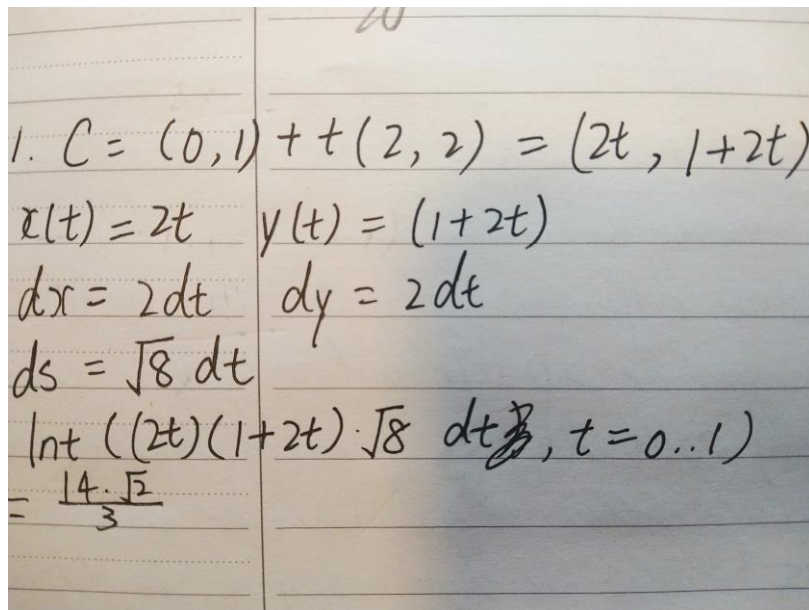 20
1. C = (0,1) + t(2,2) = (2t, 1+2t)
x(t) = 2t y(t) = (1+2t)
dx = 2dt dy = 2dt
ds = √8 dt
Int ((2t)(1+2t)·√8 dt, t=0..1)
= 14·√2/3